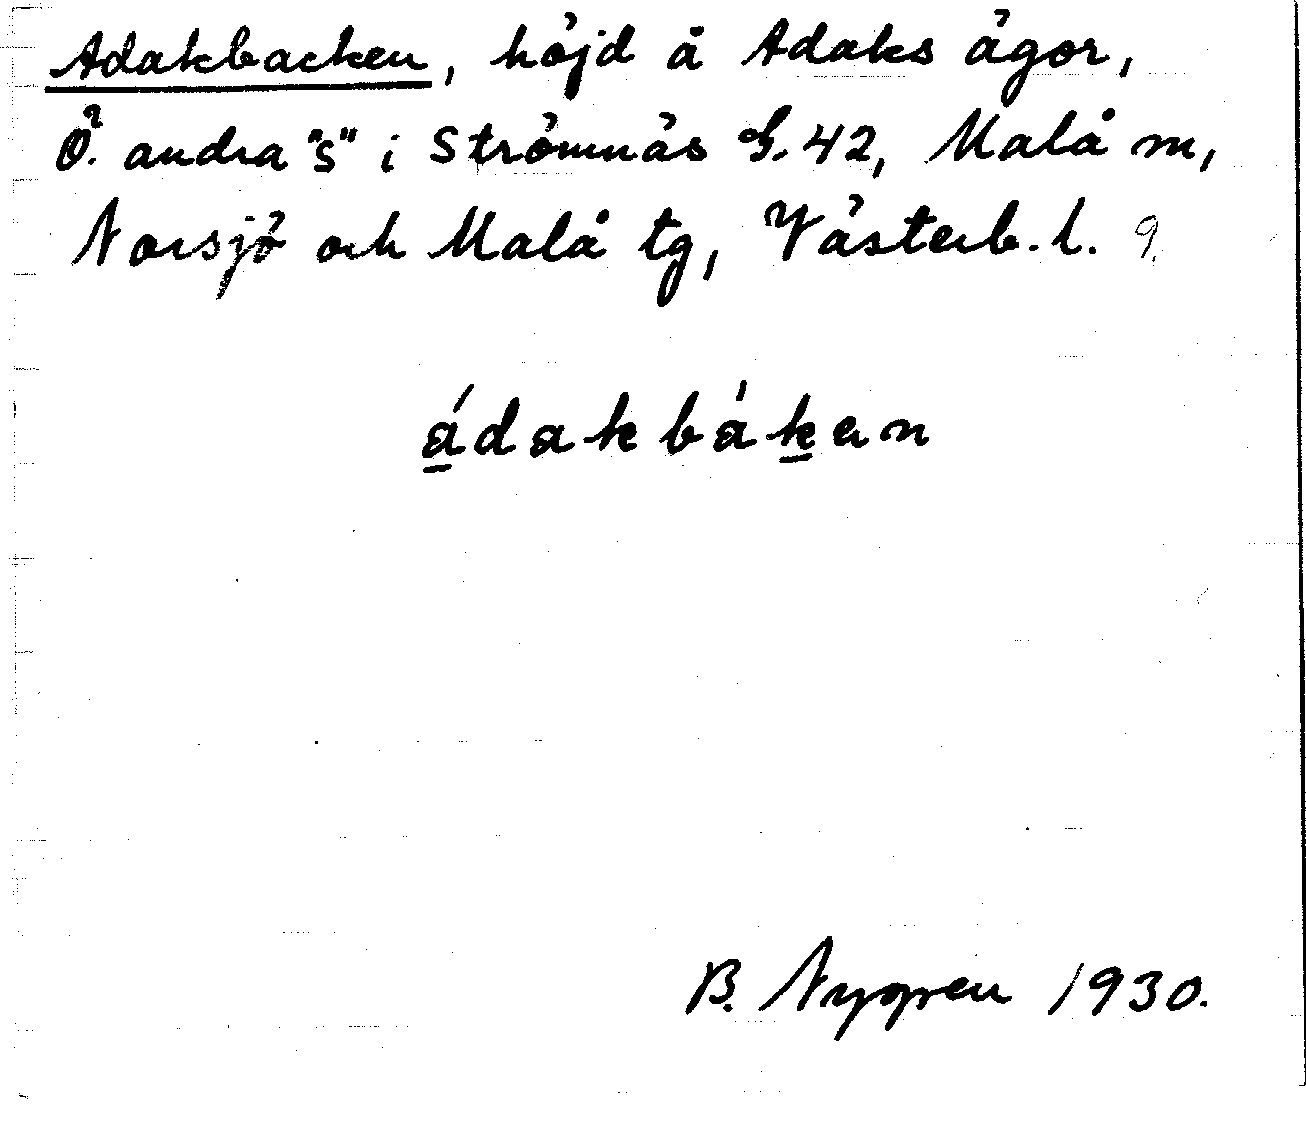 Adakbacken, höjd å Adaks ägor,
Ö. andra "s" i Strömnäs G. 42, Malå m,
Norsjö och Malå tg, Västerb. l. 9.
ádakbákən
B. Nygren 1930.